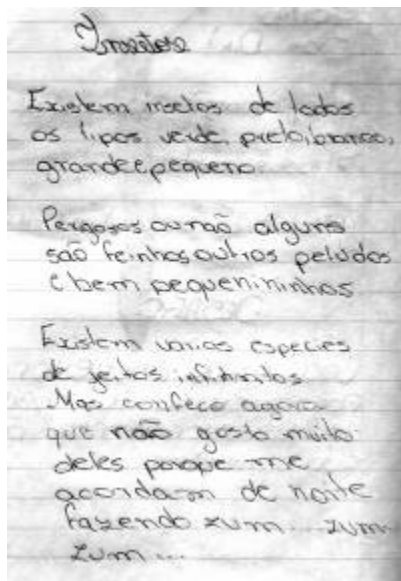 Insetos
Existem insetos de todos
os tipos verde, preto, branco,
grande e pequeno.
Perigosos ou não alguns
são feinhos outros peludos
e bem pequenininhos
Existem varias especies
de jeitos infinitos.
Mas confeço agora
que não gosto muito
deles porque me
acordam de noite
fazendo zum... zum...
zum...